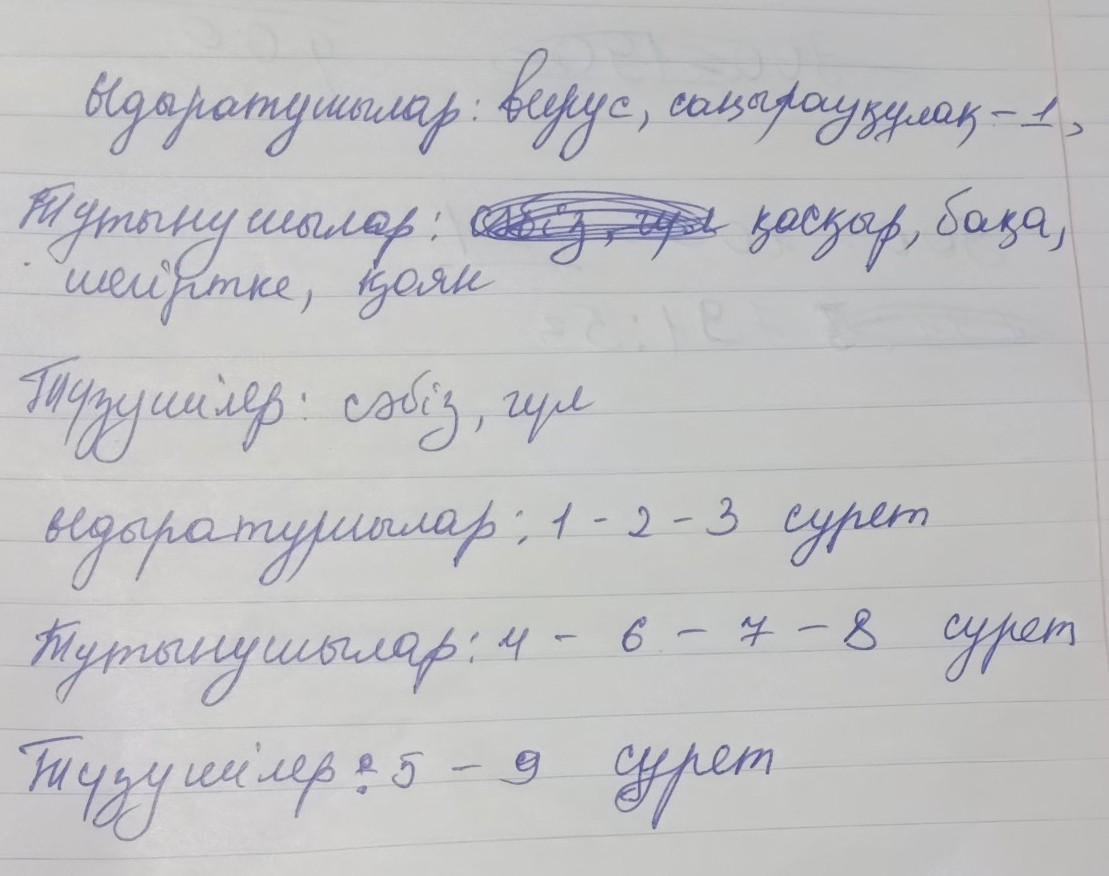 Ыдыратушылар: вирус, саңырауқұлақ - 1,
Тутынушылар: қасқыр, бақа,
шегіртке, қоян
Түзушілер: сәбіз, гүл
ыдыратушылар: 1 - 2 - 3 сурет
Тутынушылар: 4 - 6 - 7 - 8 сурет
Түзушілер: 5 - 9 сурет